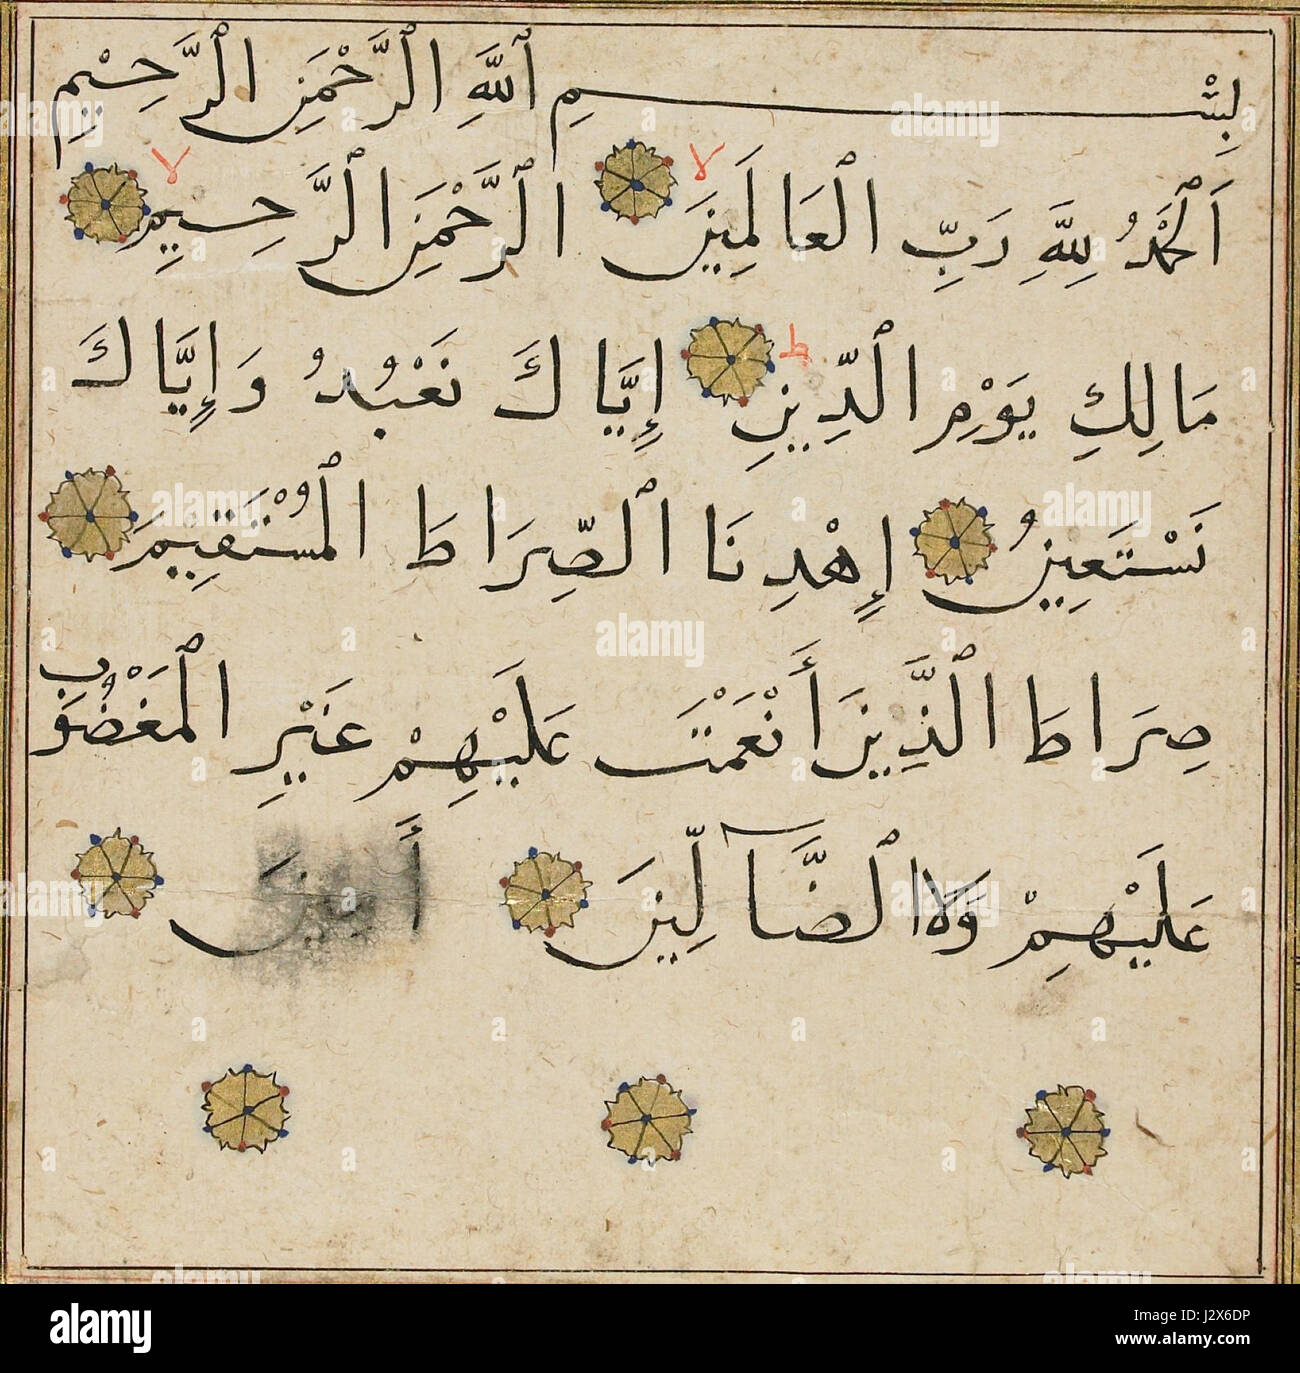 بِسْمِ ٱللَّهِ ٱلرَّحْمَنِ ٱلرَّحِيْمِ
اَلْحَمْدُ لِلَّهِ رَبِّ ٱلْعَالَمِينَ لا ٱلرَّحْمَنِ ٱلرَّحِيمِ لا
مَالِكِ يَوْمِ ٱلدِّينِ ط إِيَّاكَ نَعْبُدُ وَإِيَّاكَ
نَسْتَعِينُ إِهْدِنَا ٱلصِّرَاطَ ٱلْمُسْتَقِيمَ
صِرَاطَ ٱلَّذِينَ أَنْعَمْتَ عَلَيْهِمْ غَيْرِ ٱلْمَغْضُوبِ
عَلَيْهِمْ وَلَا ٱلضَّآلِّينَ أَمِينَ
alamy
Image ID: J2X6DP
www.alamy.com